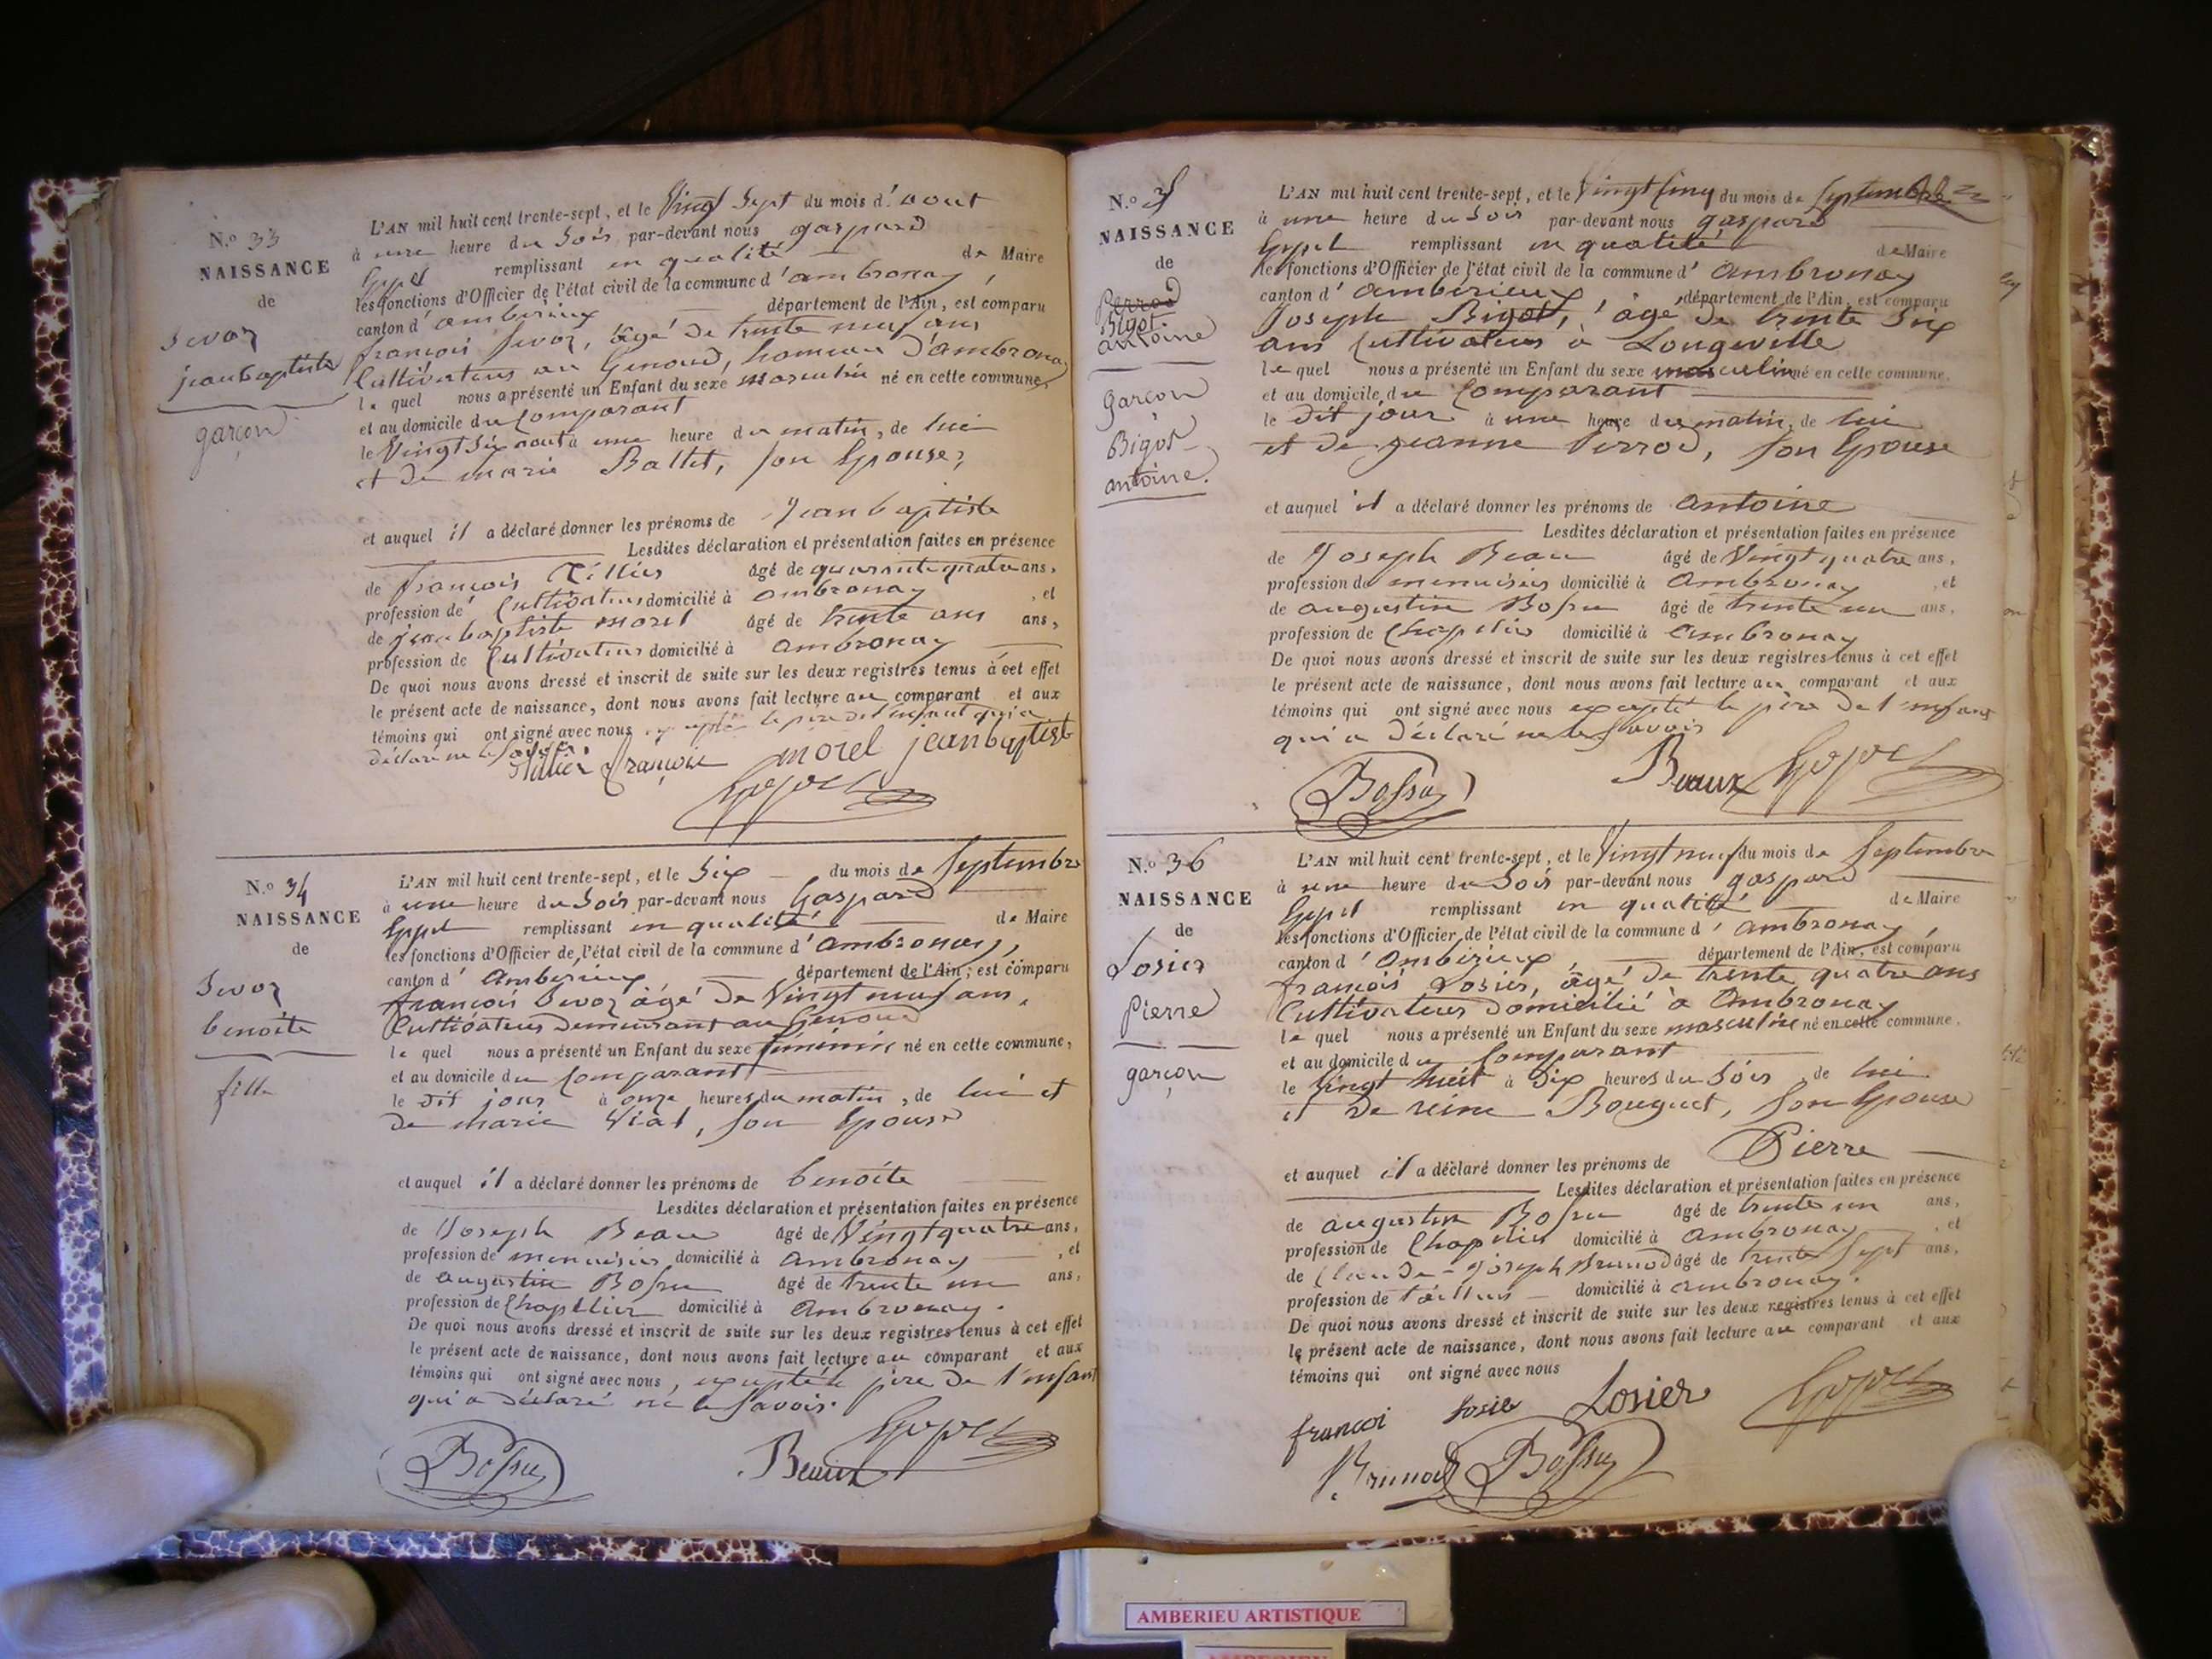 N.o 33
NAISSANCE
de
Sevoz
jean baptiste
garçon
L'AN mil huit cent trente-sept, et le Vingt Sept du mois d'aout
à une heure du Soir par-devant nous gaspard
remplissant en qualité de Maire
les fonctions d'Officier de l'état civil de la commune d'ambronay,
canton d'amberieux département de l'Ain, est comparu
françois Sevoz, âgé de trente neuf ans
Cultivateur au Genoud, hameau d'ambronay
le quel nous a présenté un Enfant du sexe masculin né en cette commune,
et au domicile du Comparant
le Vingt Six aout à une heure du matin, de lui
et de marie Ballet, son Epouse,
et auquel il a déclaré donner les prénoms de Jean baptiste
Lesdites déclaration et présentation faites en présence
de françois Tillier âgé de quarante quatre ans,
profession de Cultivateur domicilié à ambronay, et
de jean baptiste morel âgé de trente ans ans,
profession de Cultivateur domicilié à ambronay
De quoi nous avons dressé et inscrit de suite sur les deux registres tenus à cet effet
le présent acte de naissance, dont nous avons fait lecture au comparant et aux
témoins qui ont signé avec nous excepté le père de l'enfant qui a
déclaré ne le savoir
Tillier françois morel jean baptiste
N.o 34
NAISSANCE
de
Sevoz
benoite
fille
L'AN mil huit cent trente-sept, et le Six du mois de Septembre
à une heure du Soir par-devant nous Gaspard
remplissant en qualité de Maire
les fonctions d'Officier de l'état civil de la commune d'ambronay,
canton d'Amberieux département de l'Ain, est comparu
françois Sevoz âgé de Vingt neuf ans,
Cultivateur demeurant au Genoud
le quel nous a présenté un Enfant du sexe féminin né en cette commune,
et au domicile du Comparant
le dit jour à onze heures du matin, de lui et
de marie Vial, son Epouse
et auquel il a déclaré donner les prénoms de benoite
Lesdites déclaration et présentation faites en présence
de Joseph Beau âgé de Vingt quatre ans,
profession de menuisier domicilié à ambronay, et
de augustin Bossu âgé de trente un ans,
profession de Chapellier domicilié à Ambronay.
De quoi nous avons dressé et inscrit de suite sur les deux registres tenus à cet effet
le présent acte de naissance, dont nous avons fait lecture au comparant et aux
témoins qui ont signé avec nous, excepté le père de l'enfant
qui a déclaré ne le savoir.
Bossu Beaux
N.o 35
NAISSANCE
de
Perrod
Bigot
antoine
garçon
Bigot
antoine.
L'AN mil huit cent trente-sept, et le Vingt Cinq du mois de Septembre
à une heure du Soir par-devant nous gaspard
remplissant en qualité de Maire
les fonctions d'Officier de l'état civil de la commune d'Ambronay
canton d'amberieux département de l'Ain, est comparu
Joseph Bigot, âgé de trente Six
ans Cultivateur à Longeville
le quel nous a présenté un Enfant du sexe masculin né en cette commune,
et au domicile du Comparant
le dit jour à une heure du matin, de lui
et de jeanne Perrod, son Epouse
et auquel il a déclaré donner les prénoms de antoine
Lesdites déclaration et présentation faites en présence
de Joseph Beau âgé de Vingt quatre ans,
profession de menuisier domicilié à Ambronay, et
de augustin Bossu âgé de trente un ans,
profession de Chapelier domicilié à Ambronay
De quoi nous avons dressé et inscrit de suite sur les deux registres tenus à cet effet
le présent acte de naissance, dont nous avons fait lecture au comparant et aux
témoins qui ont signé avec nous excepté le père de l'enfant
qui a déclaré ne le savoir
Bossu Beaux
N.o 36
NAISSANCE
de
Losier
Pierre
garçon
L'AN mil huit cent trente-sept, et le Vingt neuf du mois de Septembre
à une heure du Soir par-devant nous gaspard
remplissant en qualité de Maire
les fonctions d'Officier de l'état civil de la commune d'ambronay,
canton d'Ambérieux, département de l'Ain, est comparu
françois Losier, âgé de trente quatre ans
Cultivateur domicilié à Ambronay
le quel nous a présenté un Enfant du sexe masculin né en cette commune,
et au domicile du Comparant
le Vingt huit à Dix heures du Soir de lui
et de reine Bouguet, son Epouse
et auquel il a déclaré donner les prénoms de Pierre
Lesdites déclaration et présentation faites en présence
de augustin Bossu âgé de trente un ans,
profession de Chapelier domicilié à ambronay, et
de Claude-joseph Brunod âgé de trente Sept ans,
profession de tailleur domicilié à ambronay.
De quoi nous avons dressé et inscrit de suite sur les deux registres tenus à cet effet
le présent acte de naissance, dont nous avons fait lecture au comparant et aux
témoins qui ont signé avec nous
francoi Losier
Brunod Bossu
AMBERIEU ARTISTIQUE